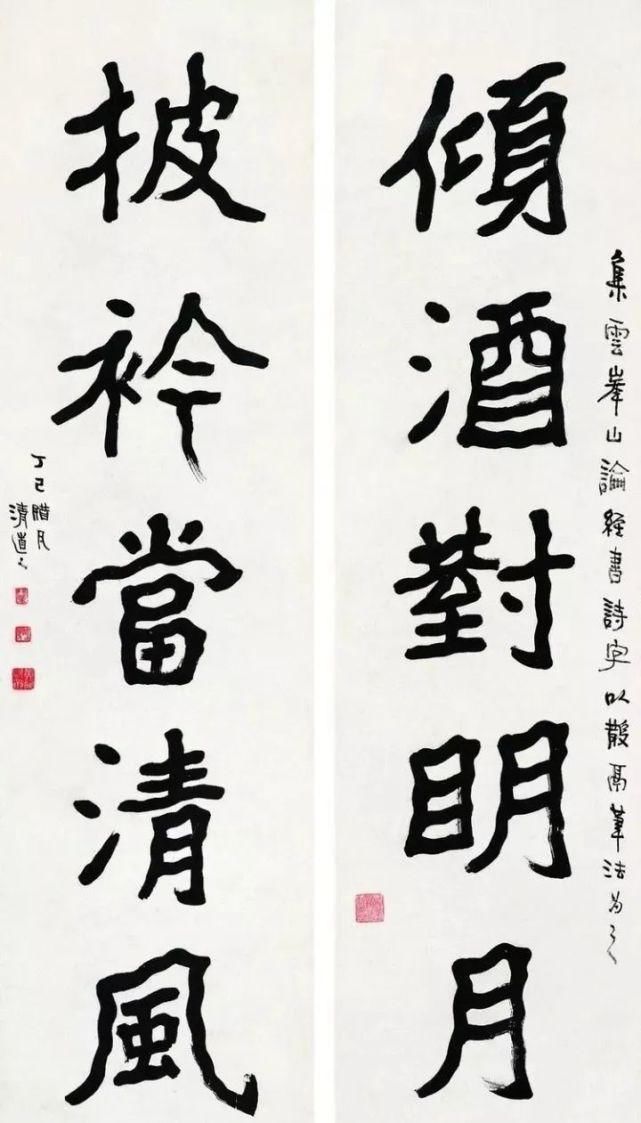 傾酒對明月
集雲峯山論經書詩字以散鬲筆法為之
披衿當清風
丁巳腊月
清道人